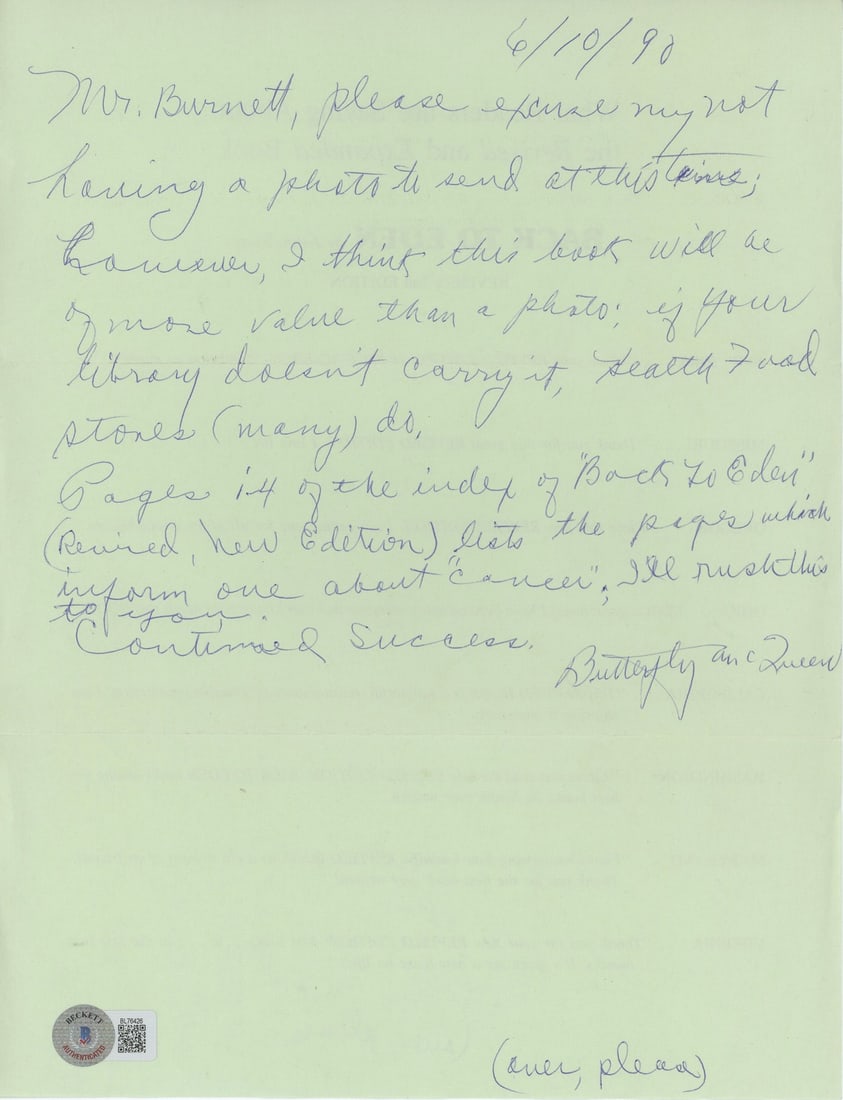 6/10/90
Mr. Burnett, please excuse my not
having a photo to send at this time;
however, I think this book will be
of more value than a photo; if your
library doesn't carry it, Health Food
stores (many) do.
Pages 14 of the index of "Back to Eden"
(Revised, New Edition) lists the pages which
inform one about "cancer"; I'll rush this
to you.
Continued Success.
Butterfly McQueen
BECKETT
B
AUTHENTICATED
BL76426
(over, please)